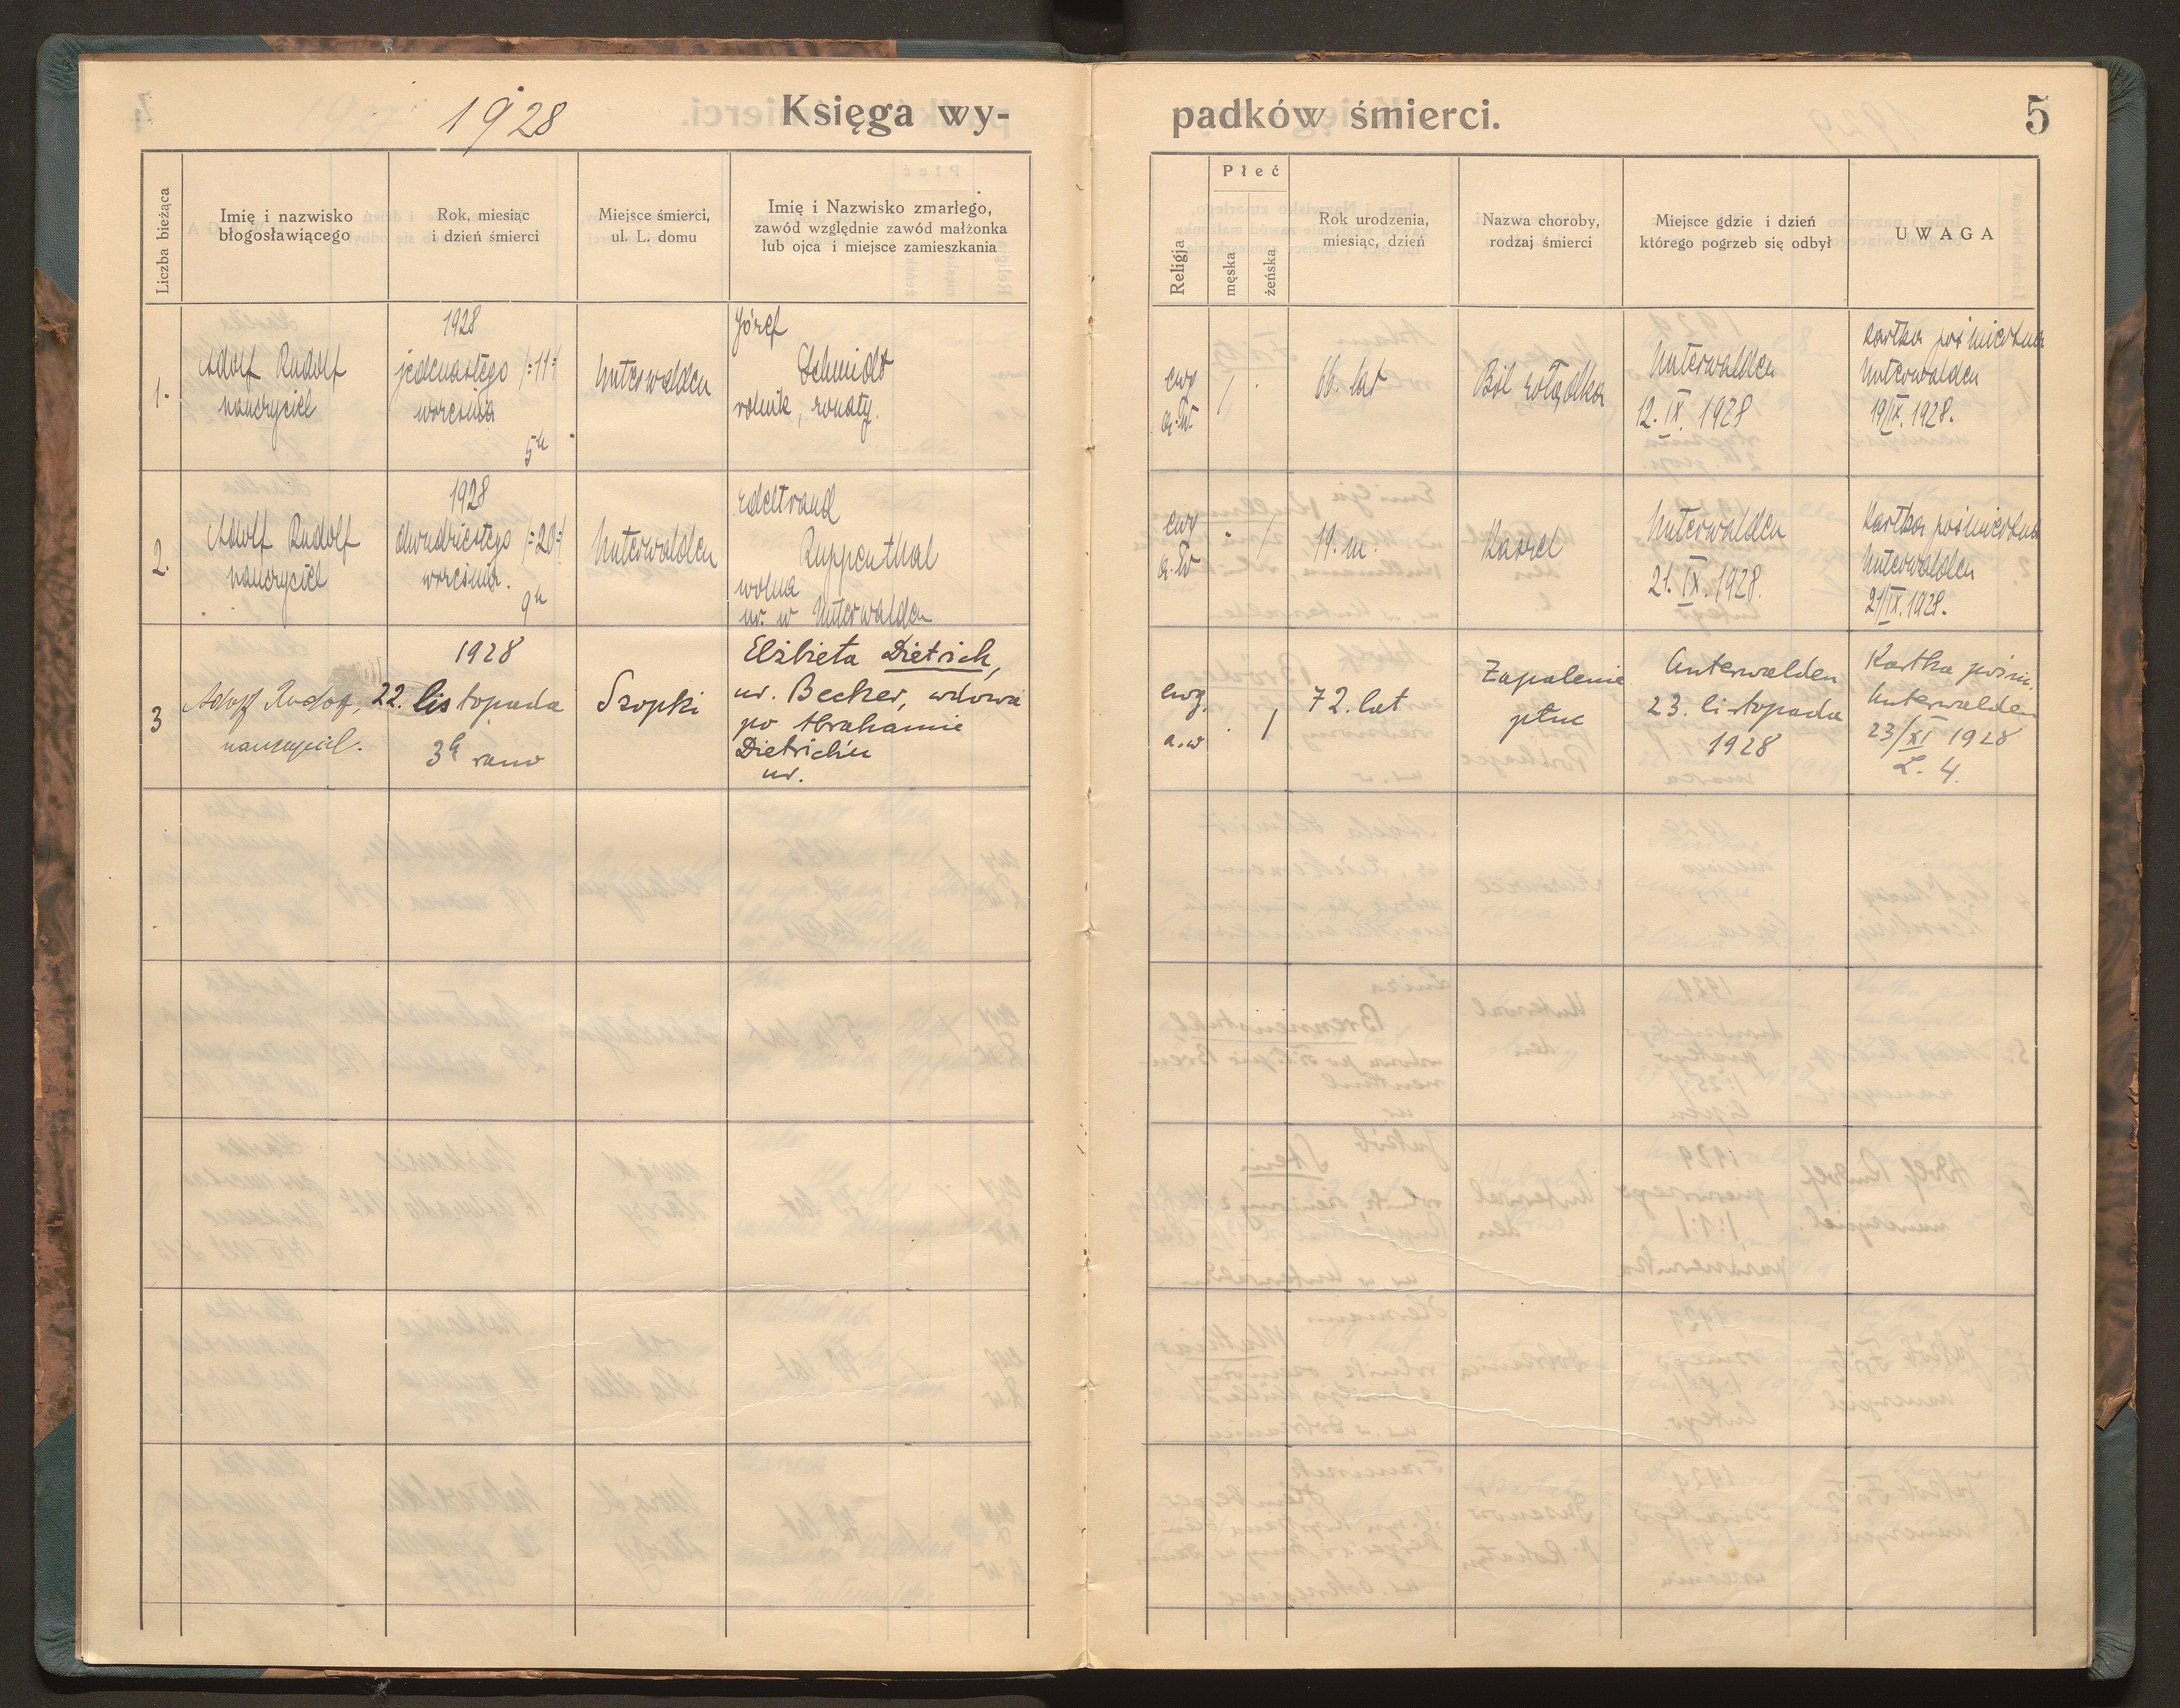 1928
Księga wy-
padków śmierci.
5
Liczba bieżąca
Imię i nazwisko
błogosławiącego
Rok, miesiąc
i dzień śmierci
Miejsce śmierci,
ul. L. domu
Imię i Nazwisko zmarłego,
zawód względnie zawód małżonka
lub ojca i miejsce zamieszkania
Religja
Płeć
męska
żeńska
Rok urodzenia,
miesiąc, dzień
Nazwa choroby,
rodzaj śmierci
Miejsce gdzie i dzień
którego pogrzeb się odbył
UWAGA
1.
Adolf Rudolf
nauczyciel
1928
jedenastego /:11:/
września
5h
Unterwalden
Józef
Schmidt
rolnik, żonaty.
ewg
a.W.
/
.
66. lat
Ból żołądka
Unterwalden
12. IX. 1928
Kartka pośmiertna
Unterwalden
19/IX. 1928.
2.
Adolf Rudolf
nauczyciel
1928
dwudziestego /:20:/
września.
9h
Unterwalden
Edeltraud
Ruppenthal
wolna
ur. w Unterwalden
ewg
a.W
.
/
19. m.
Kaszel
Unterwalden
21. IX. 1928.
Kartka pośmiertna
Unterwalden
21/IX. 1928.
3
Adolf Rudolf,
nauczyciel.
1928
22. listopada
3h rano
Szopki
Elżbieta Dietrich,
ur. Becker, wdowa
po Abrahamie
Dietrich'u
ur.
ewg.
a.w
.
/
72. lat
Zapalenie
płuc
Unterwalden
23. listopada
1928
Kartka pośm.
Unterwalden
23/XI 1928
L. 4.